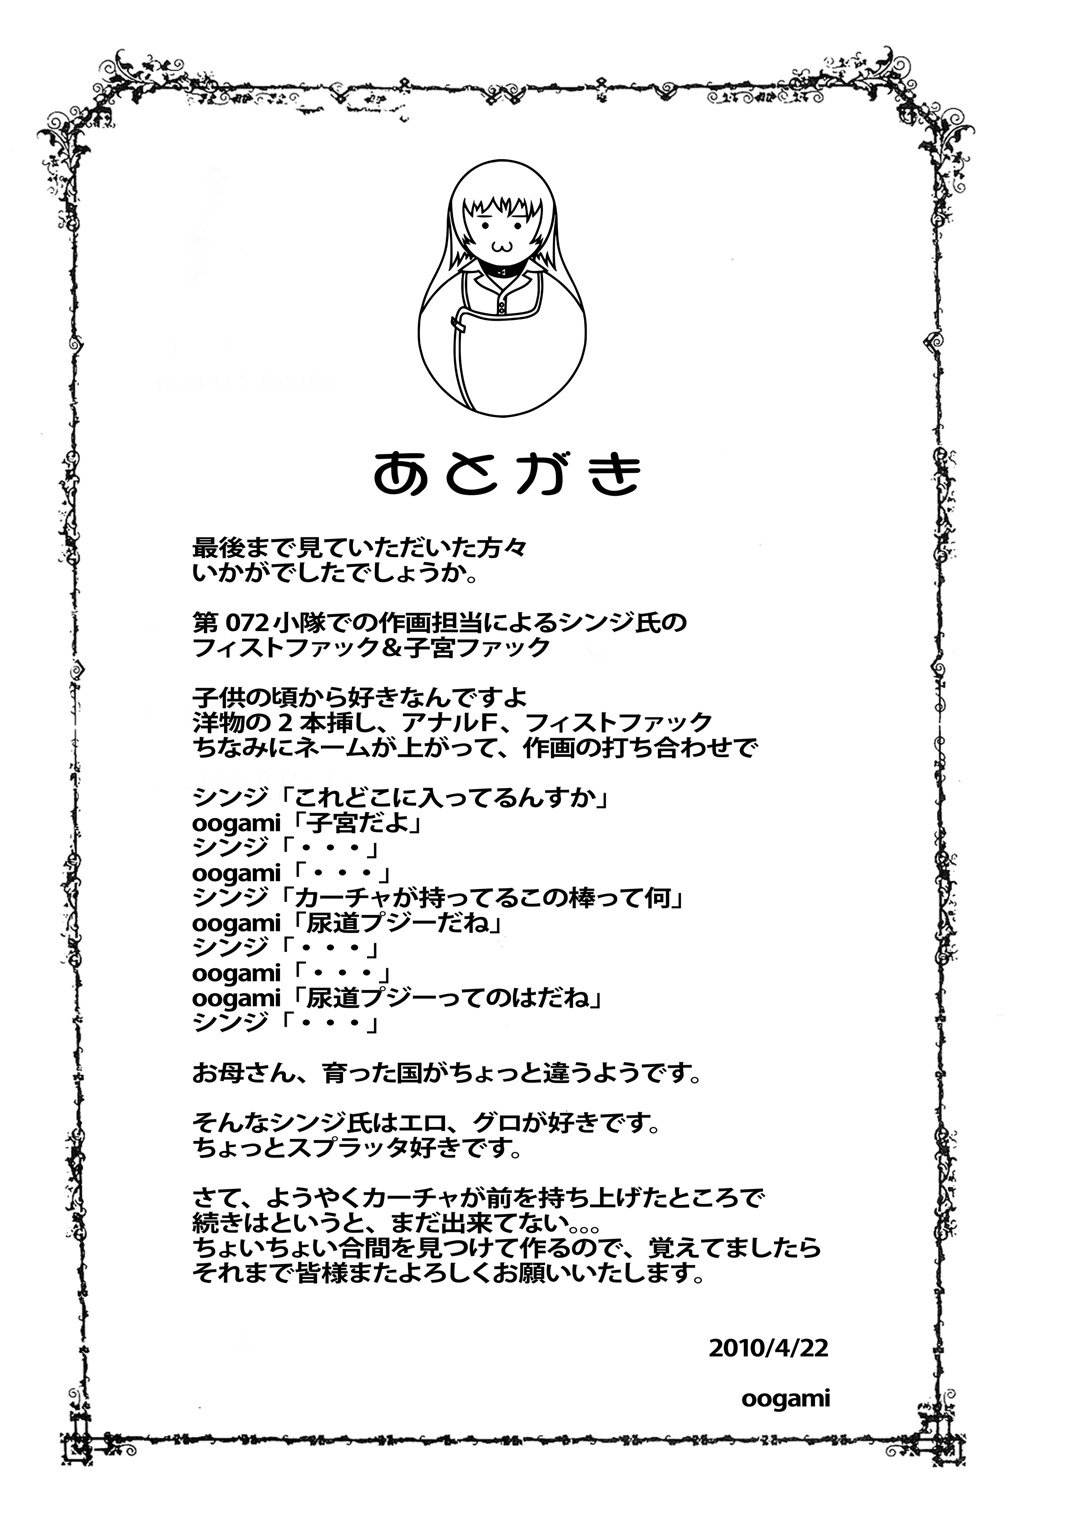 あとがき
最後まで見ていただいた方々
いかがでしたでしょうか。
第 072 小隊での作画担当によるシンジ氏の
フィストファック＆子宮ファック
子供の頃から好きなんですよ
洋物の 2 本挿し、アナルＦ、フィストファック
ちなみにネームが上がって、作画の打ち合わせで
シンジ「これどこに入ってるんすか」
oogami「子宮だよ」
シンジ「・・・」
oogami「・・・」
シンジ「カーチャが持ってるこの棒って何」
oogami「尿道プジーだね」
シンジ「・・・」
oogami「・・・」
oogami「尿道プジーってのはだね」
シンジ「・・・」
お母さん、育った国がちょっと違うようです。
そんなシンジ氏はエロ、グロが好きです。
ちょっとスプラッタ好きです。
さて、ようやくカーチャが前を持ち上げたところで
続きはというと、まだ出来てない。。。
ちょいちょい合間を見つけて作るので、覚えてましたら
それまで皆様またよろしくお願いいたします。
2010/4/22
oogami